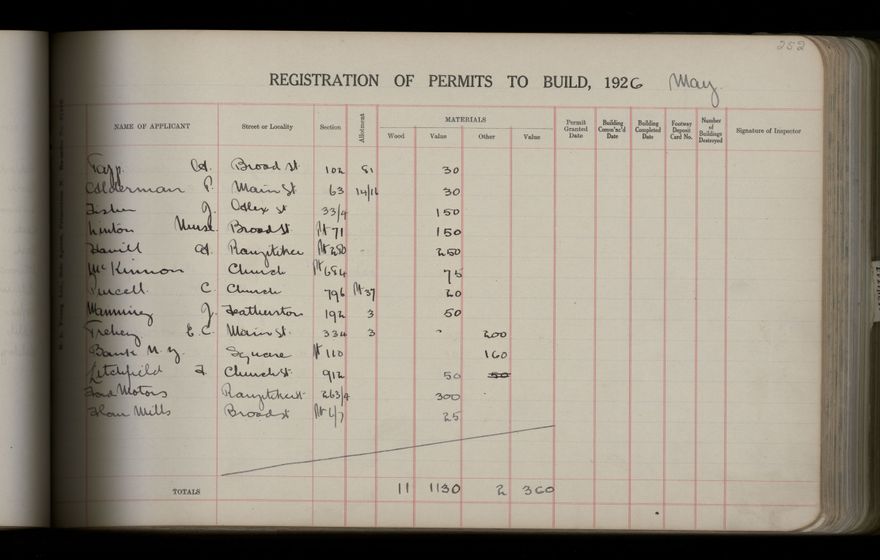 252
REGISTRATION OF PERMITS TO BUILD, 1926 May.
MATERIALS
NAME OF APPLICANT Street or Locality Section Allotment Wood Value Other Value Permit Granted Date Building Comm'nc'd Date Building Completed Date Footway Deposit Card No. Number of Buildings Destroyed Signature of Inspector
Broad St 102 51 30
Alderman P. Main St 63 14/16 30
Fisher J. St 33/4 150
Linton Broad St. Pt 71 150
Pt 280 - 250
McKinnon Church Pt 684 75
Purcell. C. Church 796 Pt 37 20
Manning J. Featherston 192 3 50
E.C. Main St. 334 3 - 200
Bank N.Z. Square Pt 110 160
Litchfield Church St. 912 50 50
Ford Motors 263/4 300
Flour Mills Broad St Pt 6/7 25
TOTALS 11 1130 2 360